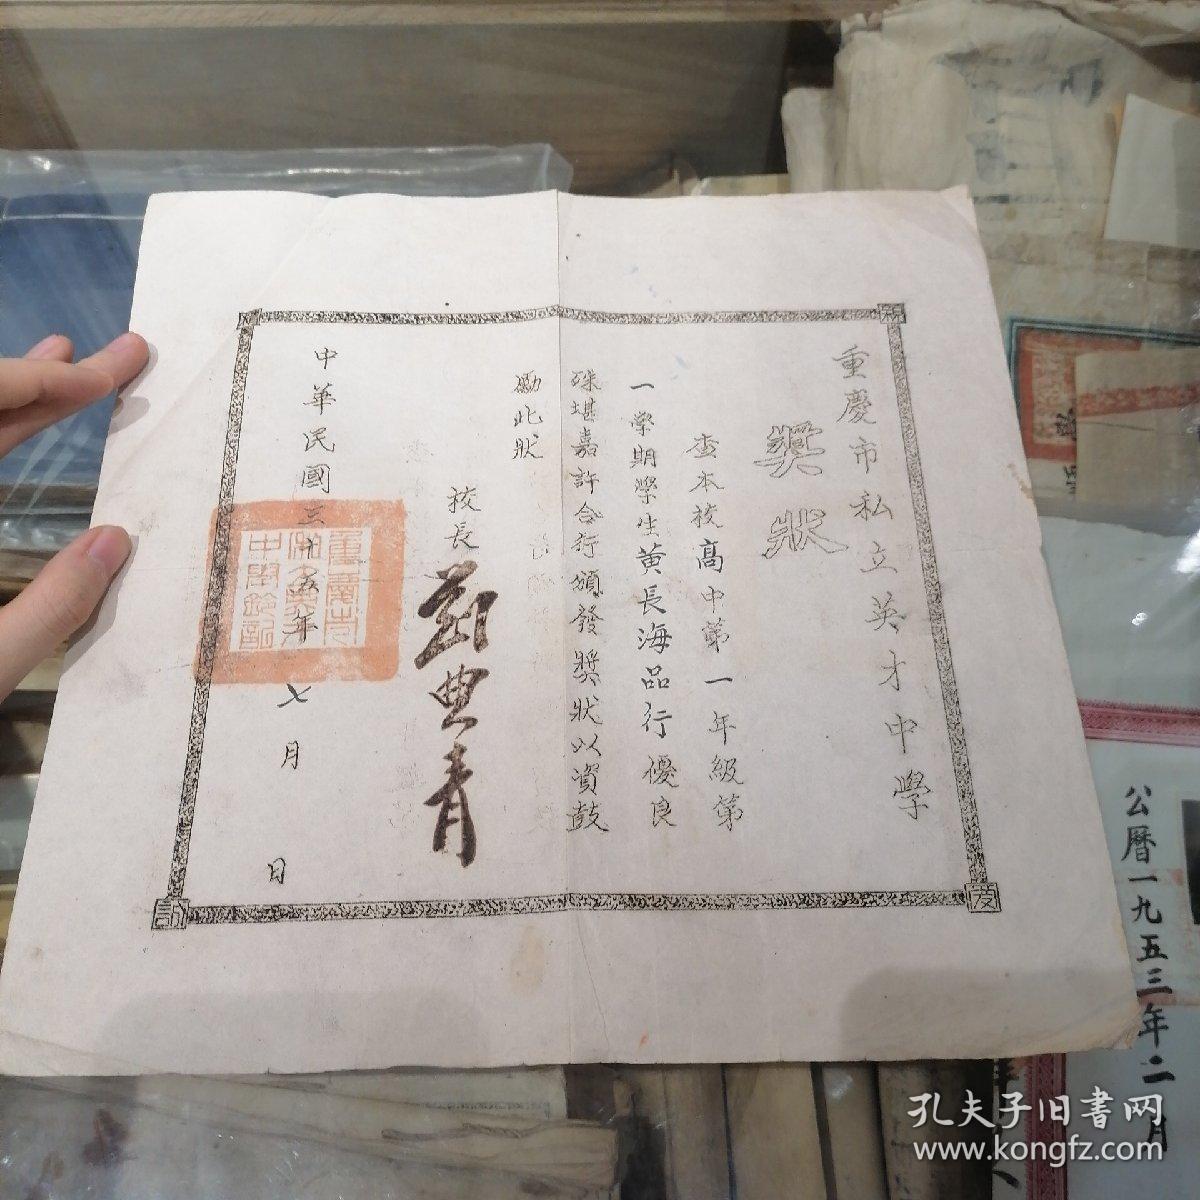 重慶市私立英才中學
獎狀
查本校高中第一年級第
一學期學生黃長海品行優良
殊堪嘉許合行頒發獎狀以資鼓
勵此狀
校長
典青
中華民國三十五年七月 日
公曆一九五三年二月
孔夫子旧書网
www.kongfz.com